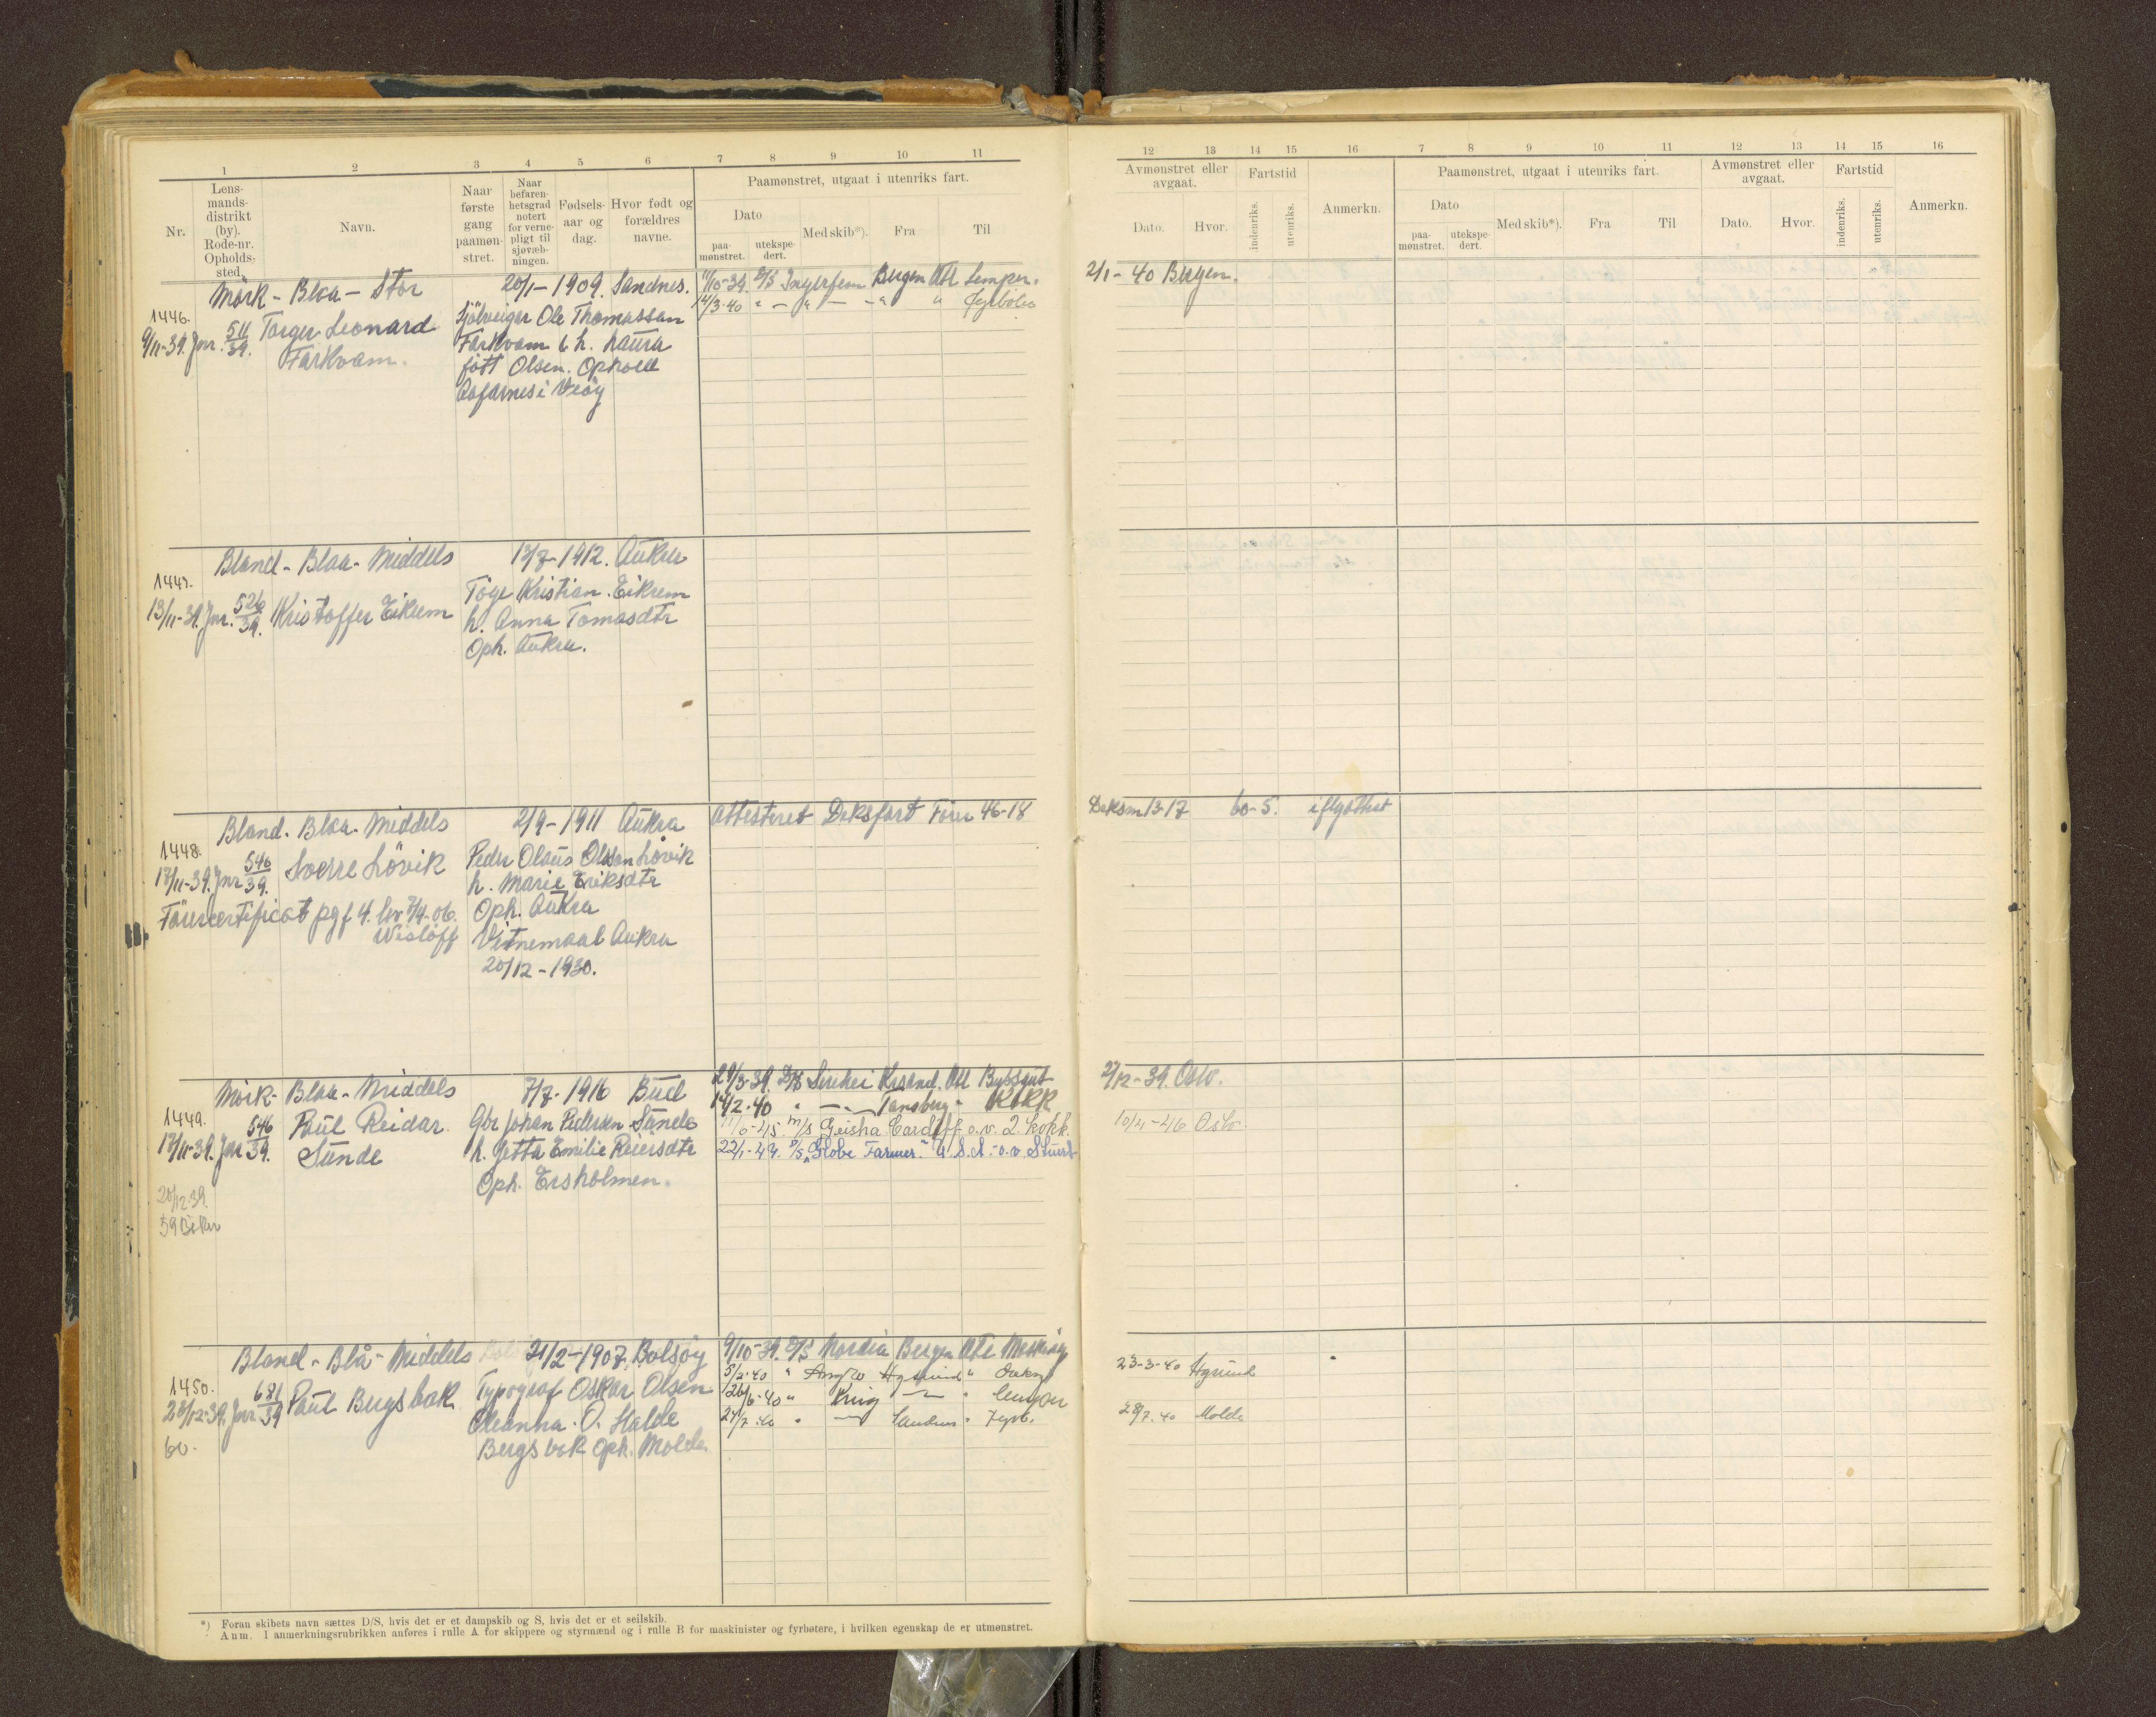 1 2 3 4 5 6 7 8 9 10 11
Nr. Lens-mands-distrikt (by). Rode-nr. Opholds-sted. Navn. Naar første gang paamøn-stret. Naar befaren-hetsgrad notert for verne-pligt til sjøvæb-ningen. Fødsels-aar og dag. Hvor født og forældres navne. Paamønstret, utgaat i utenriks fart.
Dato paa-mønstret. utekspe-dert. Med skib*). Fra Til
Mörk - Blaa - Stor 20/1-1909. Sandnes. 11/10-39. D/S Ingerfem Bergen Utl Lemper.
1446. 14/3-40 " - " - " " Fyrböter
9/11-39. Jnr. 511/39. Torger Leonard Farkvam.
Sjölveigar Ole Thomassen
Farkvam & h. Laura
fött Olsen. Ophold
Aafarnes i Veöy
Blond - Blaa - Middels 12/7-1912. Aukra
1447.
13/11-39. Jnr. 526/39. Kristoffer Eikrem
Töge Kristian Eikrem
h. Anna Tomasdtr
Oph. Aukra.
Blond. Blaa. Middels 2/9-1911 Aukra Attesteret Deksfart Förer 46-18
1448.
17/11-39. Jnr 546/39. Sverre Lövik
Peder Olaus Olssen Lövik
h. Marie Eriksdtr
Förercertificat pgf 4. lov 7/4-06. Oph. Aukra
Wislöff Vitnemaal Aukra
20/12-1930.
Mörk - Blaa - Middels 7/7-1916 Bud 29/3-39. D/S Sirehei Krsand. Utl Byssgut
1449. 12/2-40 " - " - Tønsberg " Kokk
17/11-39. Jnr 546/39. Paul Reidar Sunde
Gbr Johan Pedersen Sunde 6-45 M/S Geisha Cardiff o.v. 2. kokk.
h. Jetta Emilie Reiersdtr 22/1-49. D/S "Globe Farmer" U.S.A. - o.v. Stuert
Oph. Ersholmen.
20/12-39.
Blond - Blå - Middels 21/2-1907. Bolsöy 9/10-39. D/S Nordia Bergen Utl
1450.
23/12-39. Jnr. 681/39 Paul Bergsbak
Typograf Oskar Olsen
Oleanna. O. Halde
60. Bergsbak Oph. Molde.
5/2-40
26/6-40 " Krig
27/7-40
*) Foran skibets navn sættes D/S, hvis det er et dampskib og S, hvis det er et seilskib.
Anm. I anmerkningsrubrikken anføres i rulle A for skippere og styrmænd og i rulle B for maskinister og fyrbøtere, i hvilken egenskap de er utmønstret.
12 13 14 15 16 7 8 9 10 11 12 13 14 15 16
Avmønstret eller avgaat. Fartstid Anmerkn. Paamønstret, utgaat i utenriks fart. Avmønstret eller avgaat. Fartstid Anmerkn.
Dato. Hvor. indenriks. utenriks. Dato paa-mønstret. utekspe-dert. Med skib*). Fra Til Dato. Hvor. indenriks. utenriks.
2/1-40 Bergen.
Deksm 13-17 60-5. iflg attest
27/12-39. Oslo.
10/4-46 Oslo.
23-3-40
28/7.40 Molde